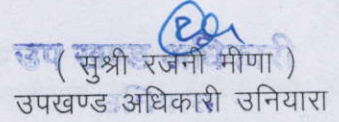 ( सुश्री रजनी मीणा )
उपखण्ड अधिकारी उनियारा